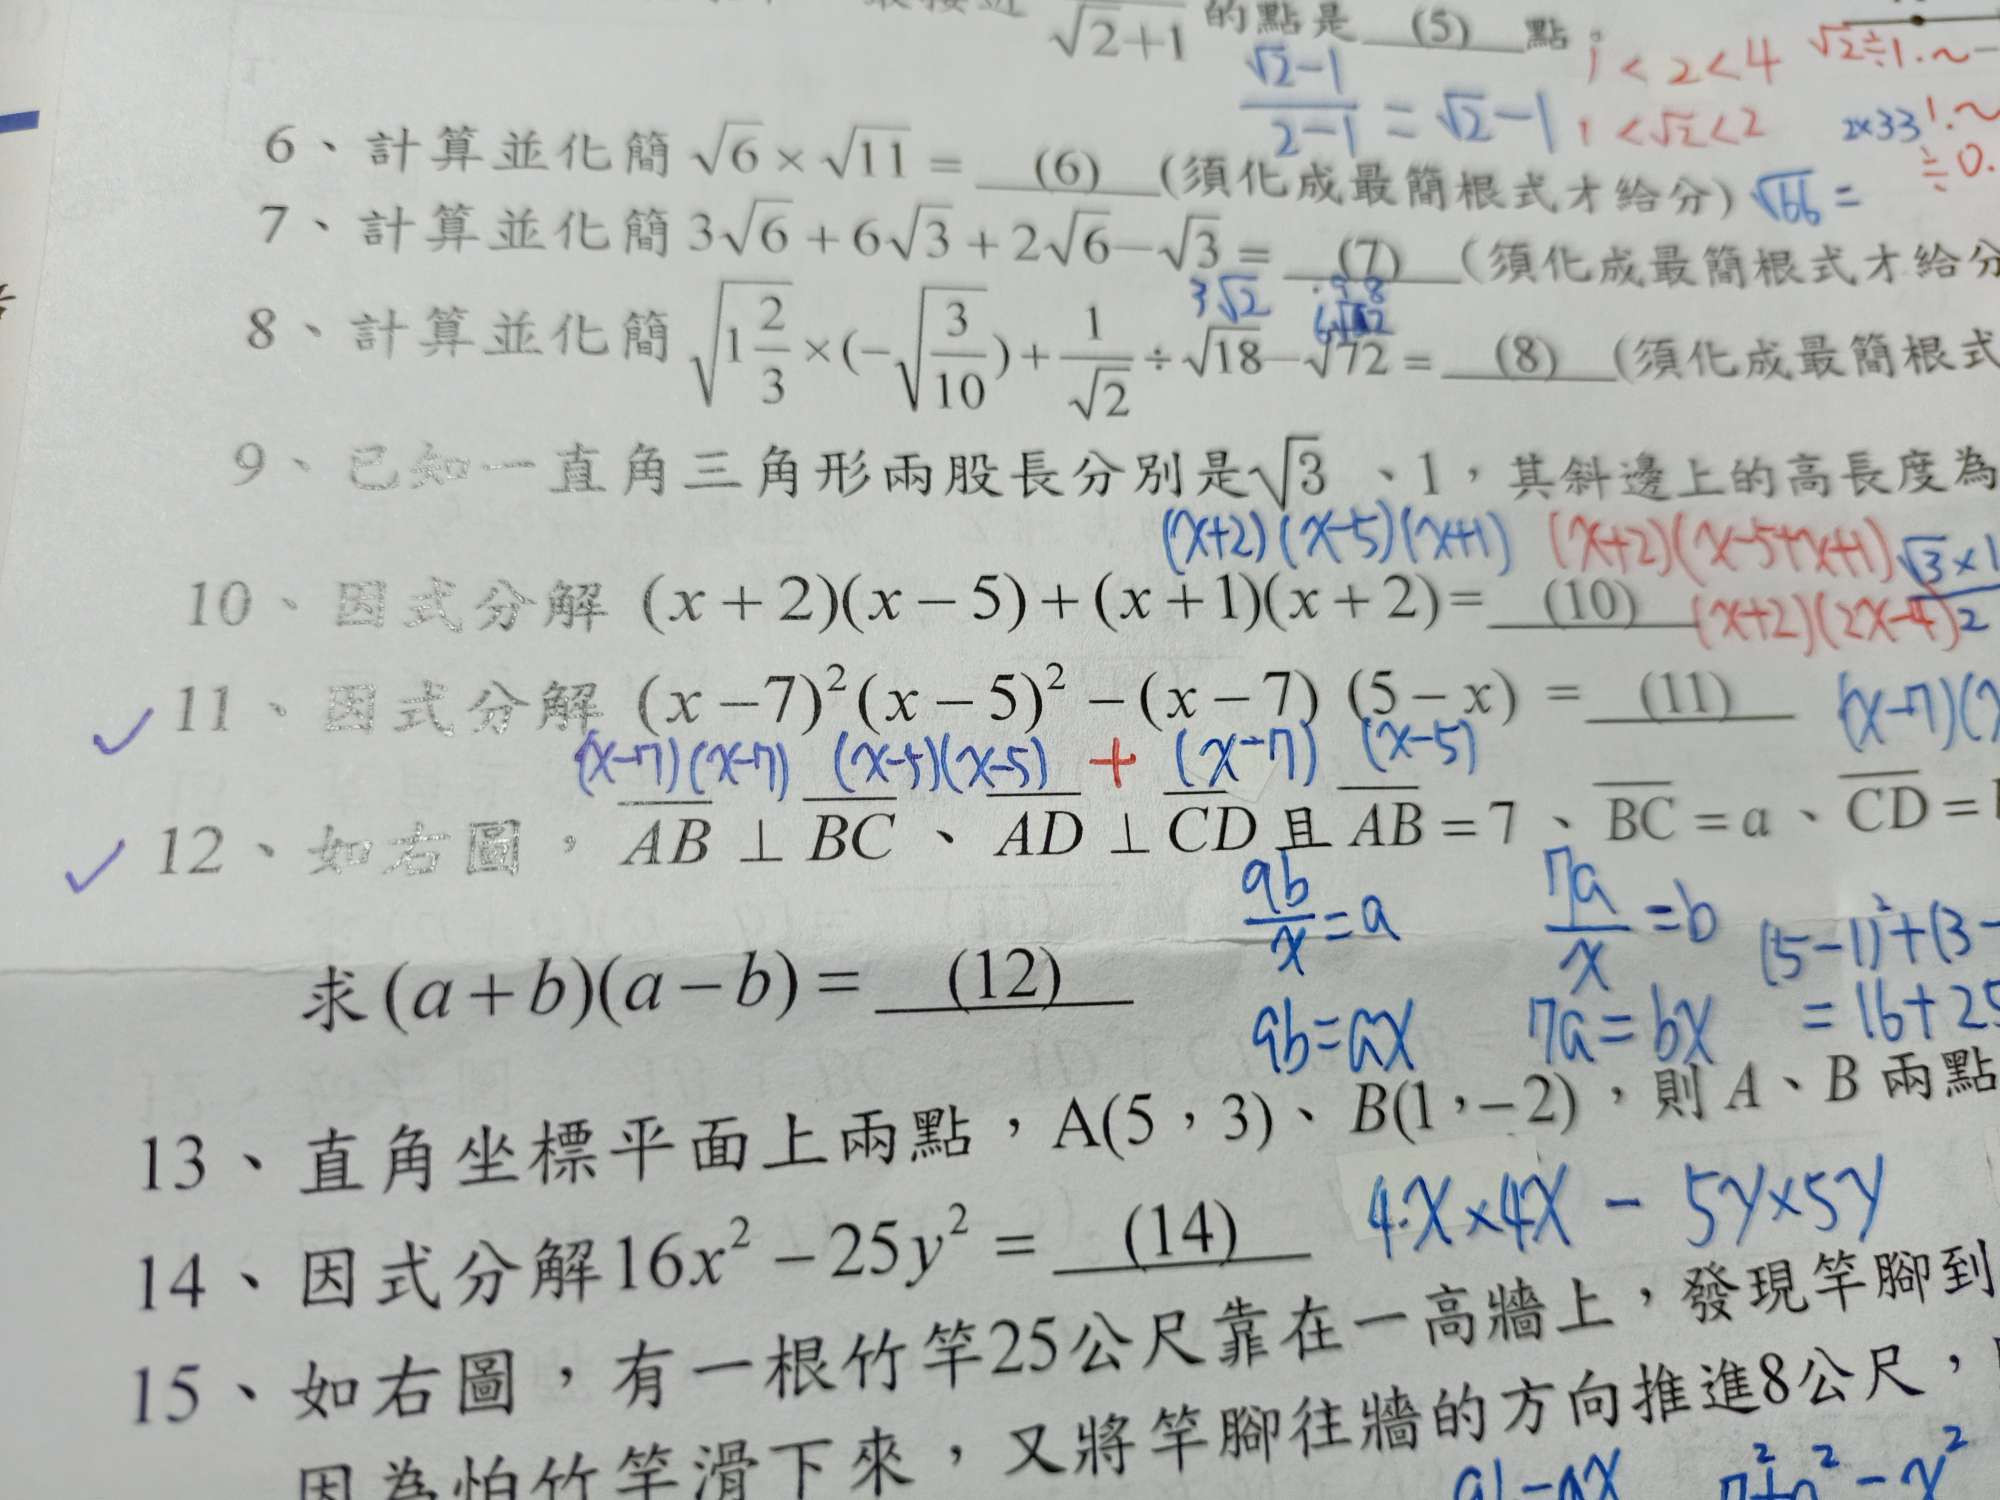 √2+1 的點是 (5) 點。
√2-1 / 2-1 = √2-1
1<2<4
1<√2<2
√2≒1.~
2×33
≒0.
6、計算並化簡 √6×√11 = (6) (須化成最簡根式才給分) √66 =
7、計算並化簡 3√6+6√3+2√6-√3 = (7) (須化成最簡根式才給分
3√2
8、計算並化簡 √(1 2/3)×(-√(3/10))+1/√2÷√18-√72 = (8) (須化成最簡根式
9、已知一直角三角形兩股長分別是√3、1，其斜邊上的高長度為
(x+2)(x-5)(x+1) (x+2)(x-5+x+1) √3×1 / 2
10、因式分解 (x+2)(x-5)+(x+1)(x+2)= (10) (x+2)(2x-4)
11、因式分解 (x-7)²(x-5)²-(x-7)(5-x) = (11) (x-7)(
(x-7)(x-7) (x-5)(x-5) + (x-7) (x-5)
12、如右圖，AB⊥BC、AD⊥CD且AB=7、BC=a、CD=
9b/x=a 7a/x=b (5-1)²+(3-
求(a+b)(a-b)= (12)
9b=ax 7a=bx =16+25
13、直角坐標平面上兩點，A(5，3)、B(1，-2)，則A、B兩點
14、因式分解16x²-25y²= (14) 4x×4x - 5y×5y
15、如右圖，有一根竹竿25公尺靠在一高牆上，發現竿腳到
因為怕竹竿滑下來，又將竿腳往牆的方向推進8公尺，